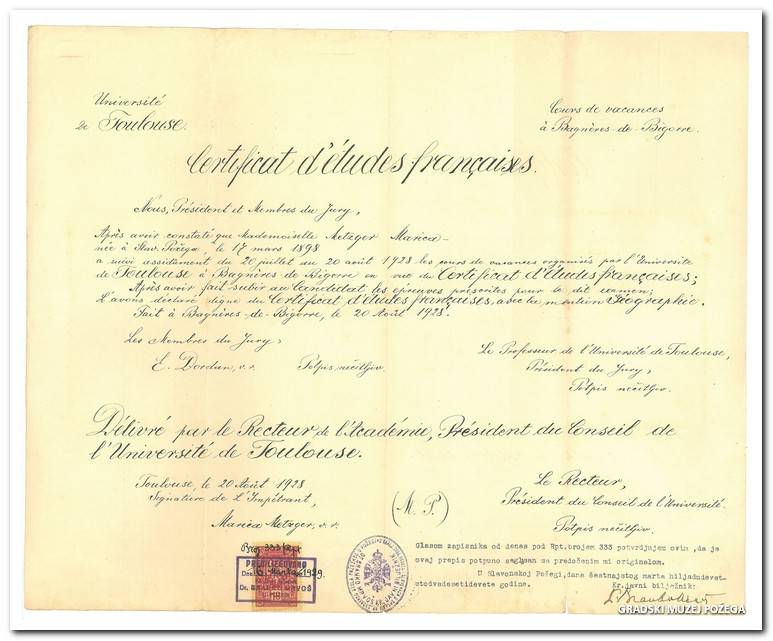 Université
de Toulouse.
Cours de vacances
à Bagnères-de-Bigorre.
Certificat d'études françaises.
Nous, Président et Membres du Jury,
Après avoir constaté que Mademoiselle Metzger Marica
née à Slav. Požega, le 17 mars 1898
a suivi assidument du 20 juillet au 20 août 1928 les cours de vacances organisés par l'Université
de Toulouse à Bagnères de Bigorre en vue du Certificat d'études françaises;
Après avoir fait subir au Candidat les épreuves prescrites pour le dit examen;
L'avons déclaré digne du Certificat d'études françaises, avec la mention Géographie.
Fait à Bagnères-de-Bigorre, le 20 Août 1928.
Les Membres du Jury,
E. Dordan, v. r. Potpis nečitljiv.
Le Professeur de l'Université de Toulouse,
Président du Jury,
Potpis nečitljiv.
Délivré par le Recteur de l'Académie, Président du Conseil de
l'Université de Toulouse.
Toulouse, le 20 Août 1928
Signature de L'Impétrant,
Marica Metzger, v. r.
(M. P.)
Le Recteur,
Président du Conseil de l'Université.
Potpis nečitljiv.
Broj 333
Dne 16 marta 1929.
Glasom zapisnika od denas pod Rpt.brojem 333 potvrdjujem ovim, da je
ovaj prepis potpuno saglasan sa predočenim mi originalom.
U Slavonskoj Požegi, dana šestnajstog marta hiljadudevet-
stodvadesetidevete godine.
Kr. javni bilježnik:
GRADSKI MUZEJ POŽEGA